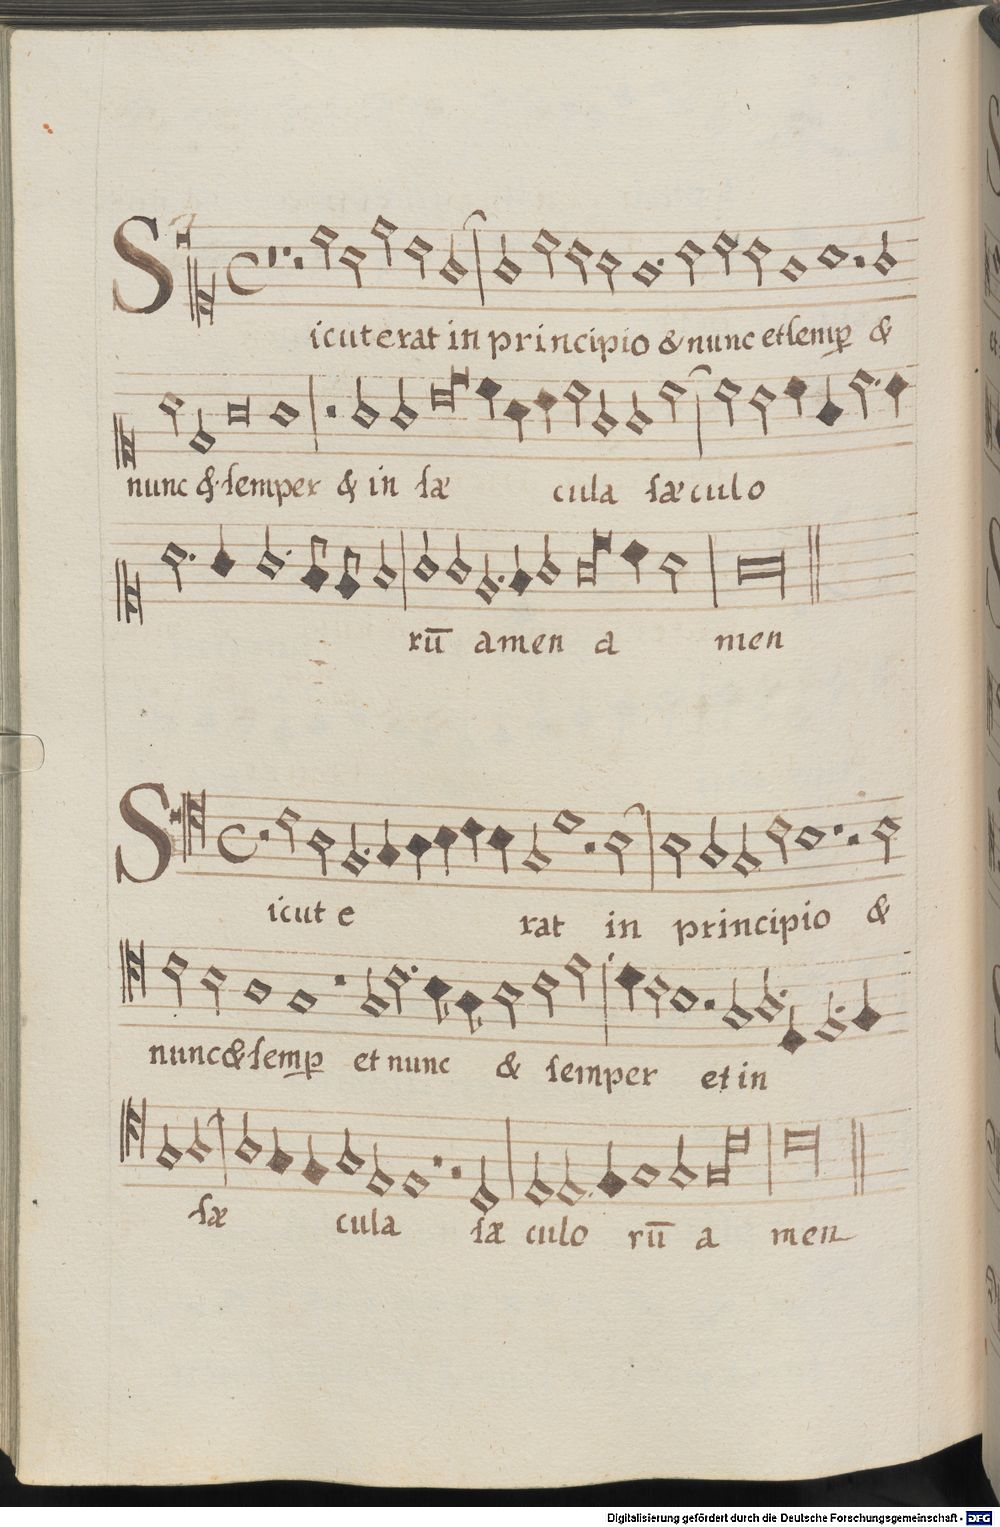 Sicut erat in principio & nunc et semp &
nunc & semper & in sæ cula sæculo
rū amen a men
Sicut e rat in principio &
nunc & semp et nunc & semper et in
sæ cula sæ culo rū a men
Digitalisierung gefördert durch die Deutsche Forschungsgemeinschaft - DFG